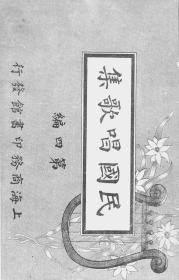 民國唱歌集
第四編
上海商務印書館發行